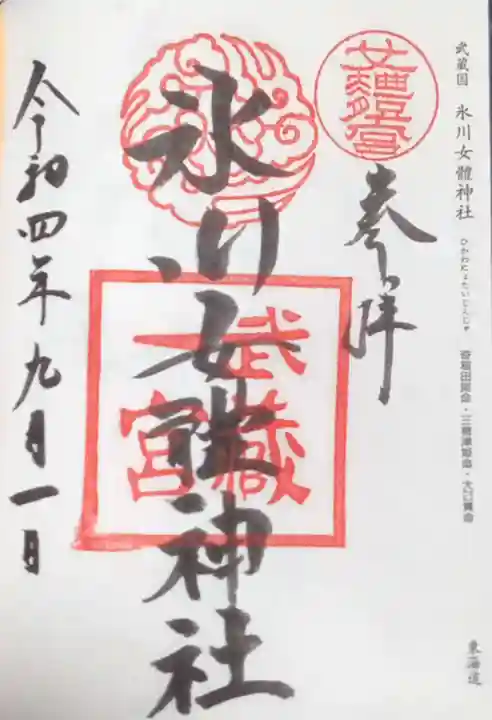 武蔵国 氷川女體神社
ひかわにょたいじんじゃ
奇稲田姫命・三穂津姫命・大己貴命
東海道
奉拝
氷川女體神社
武蔵
一宮
令和四年九月一日